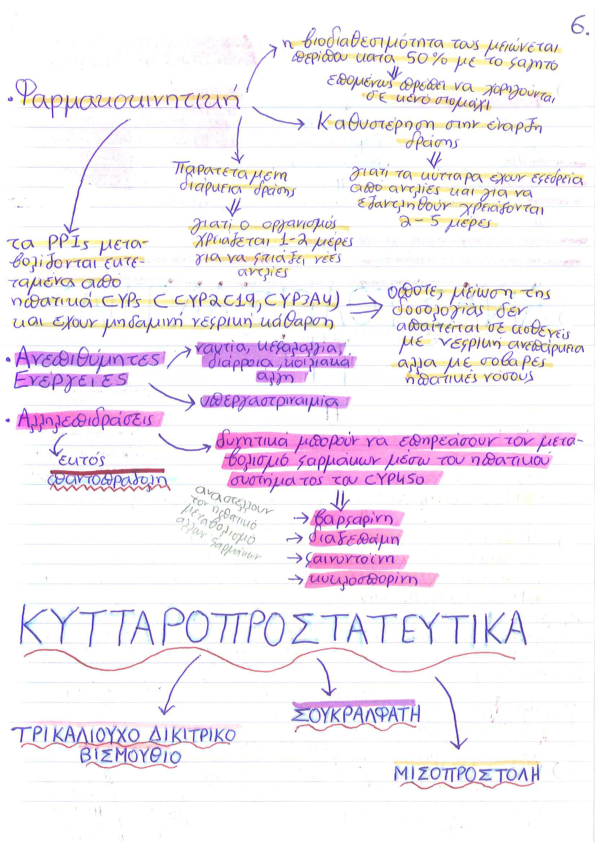 6.
η βιοδιαθεσιμότητα τους μειώνεται
περίπου κατά 50% με το φαγητό
επομένως πρέπει να χορηγούνται
σε κενό στομάχι
• Φαρμακοκινητική
Καθυστέρηση στην έναρξη
δράσης
γιατί τα κύτταρα έχουν εφεδρεία
από αντλίες και για να
εξαντληθούν χρειάζονται
2-5 μέρες
Παρατεταμένη
διάρκεια δράσης
γιατί ο οργανισμός
χρειάζεται 1-2 μέρες
για να φτιάξει νέες
αντλίες
τα PPIs μετα-
βολίζονται εκτε-
ταμένα από
ηπατικά CYPs ( CYP2C19, CYP3A4)
και έχουν μηδαμινή νεφρική κάθαρση
Οπότε, μείωση της
δοσολογίας δεν
απαιτείται σε ασθενείς
με νεφρική ανεπάρκεια
αλλα με σοβαρές
ηπατικές νόσους
• Ανεπιθύμητες
Ενέργειες
ναυτία, κεφαλαλγία,
διάρροια, κοιλιακά
άλγη
υπεργαστριναιμία
• Αλληλεπιδράσεις
εκτός
παντοπραζόλη
δυνητικά μπορούν να επηρεάσουν τον μετα-
βολισμό φαρμάκων μέσω του ηπατικού
συστήματος του CYP450
αναστέλλουν
τον ηπατικό
μεταβολισμό
άλλων φαρμάκων
→ βαρφαρίνη
→ διαζεπάμη
→ φαινυντοΐνη
→ κυκλοσπορίνη
ΚΥΤΤΑΡΟΠΡΟΣΤΑΤΕΥΤΙΚΑ
ΤΡΙΚΑΛΙΟΥΧΟ ΔΙΚΙΤΡΙΚΟ
ΒΙΣΜΟΥΘΙΟ
ΣΟΥΚΡΑΛΦΑΤΗ
ΜΙΣΟΠΡΟΣΤΟΛΗ